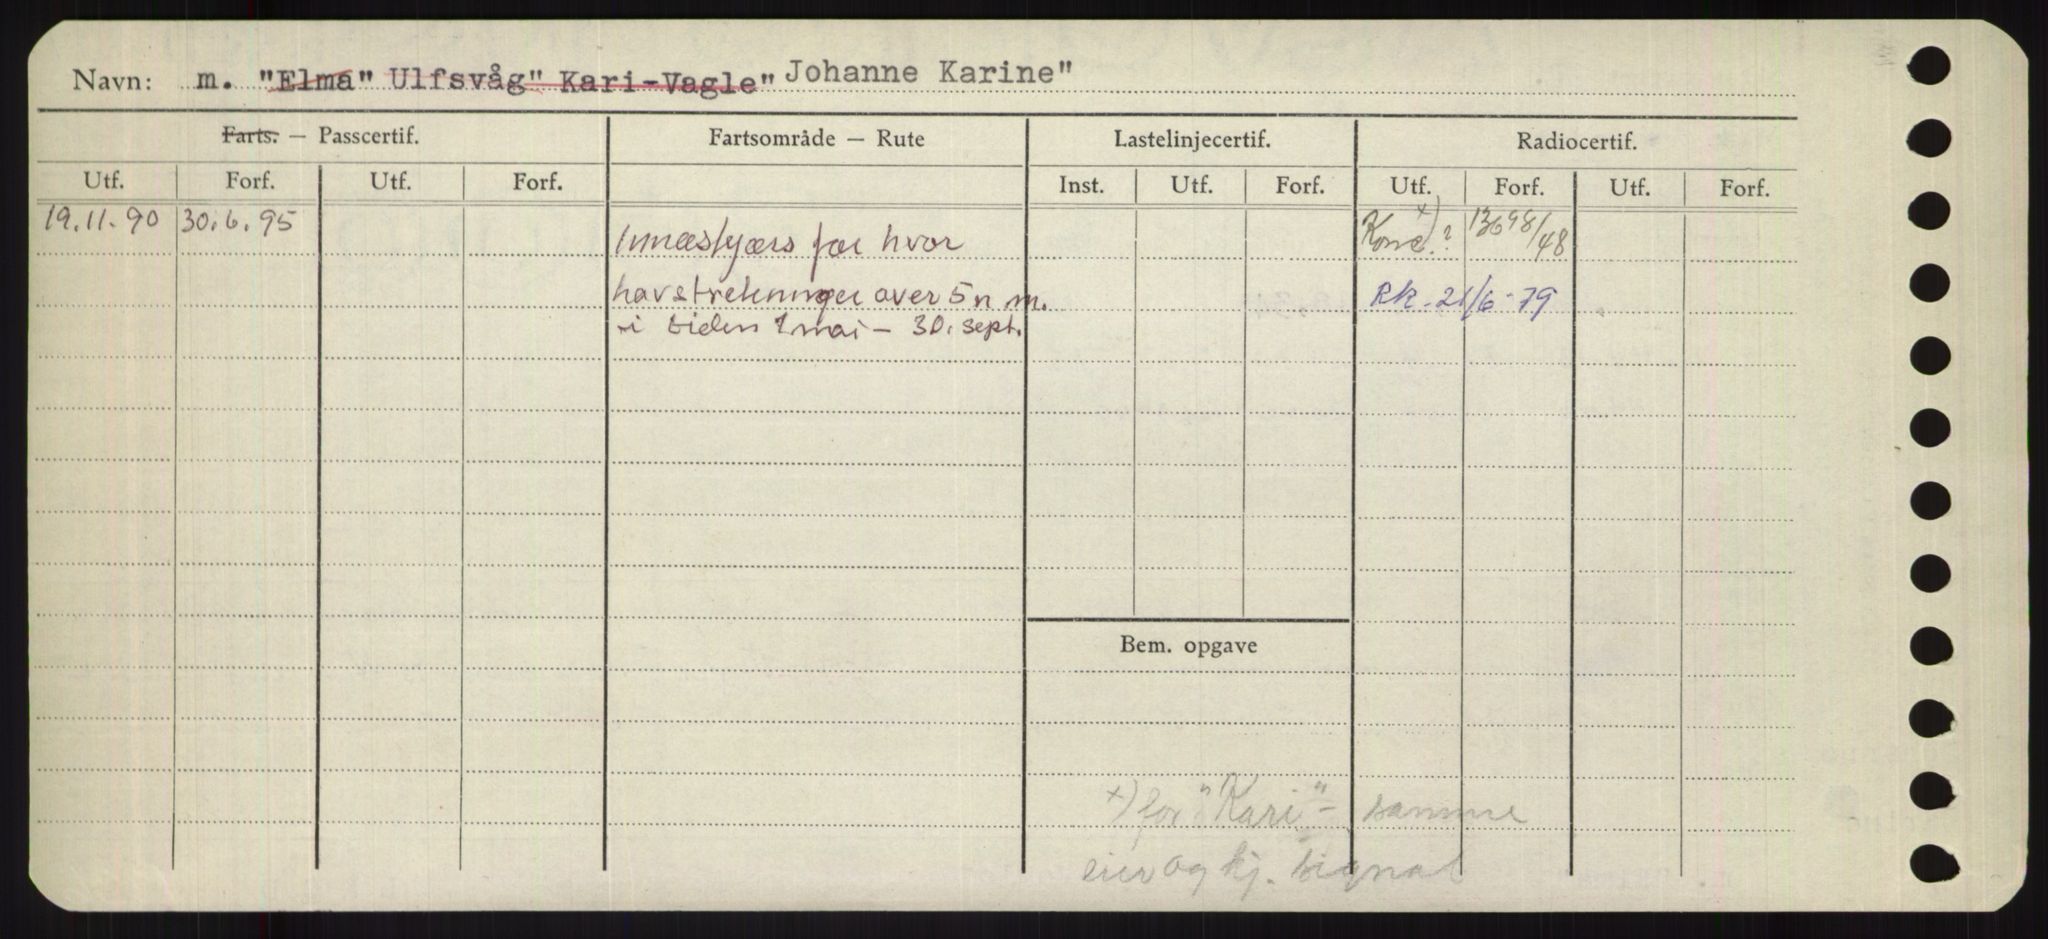 Navn: m. "Elma" Ulfsvåg" Kari-Vagle" Johanne Karine"
Farts. — Passcertif. Fartsområde — Rute Lastelinjecertif. Radiocertif.
Utf. Forf. Utf. Forf. Inst. Utf. Forf. Utf. Forf. Utf. Forf.
19.11.90 30.6.95 Innaskjærs for hvor x) ? /48
havstrekninger over 5 n. m. RK. 21/6-79
i tiden 1 mai – 30. sept.
Bem. opgave
x) for "Kari" – samme
eier og kj. signal